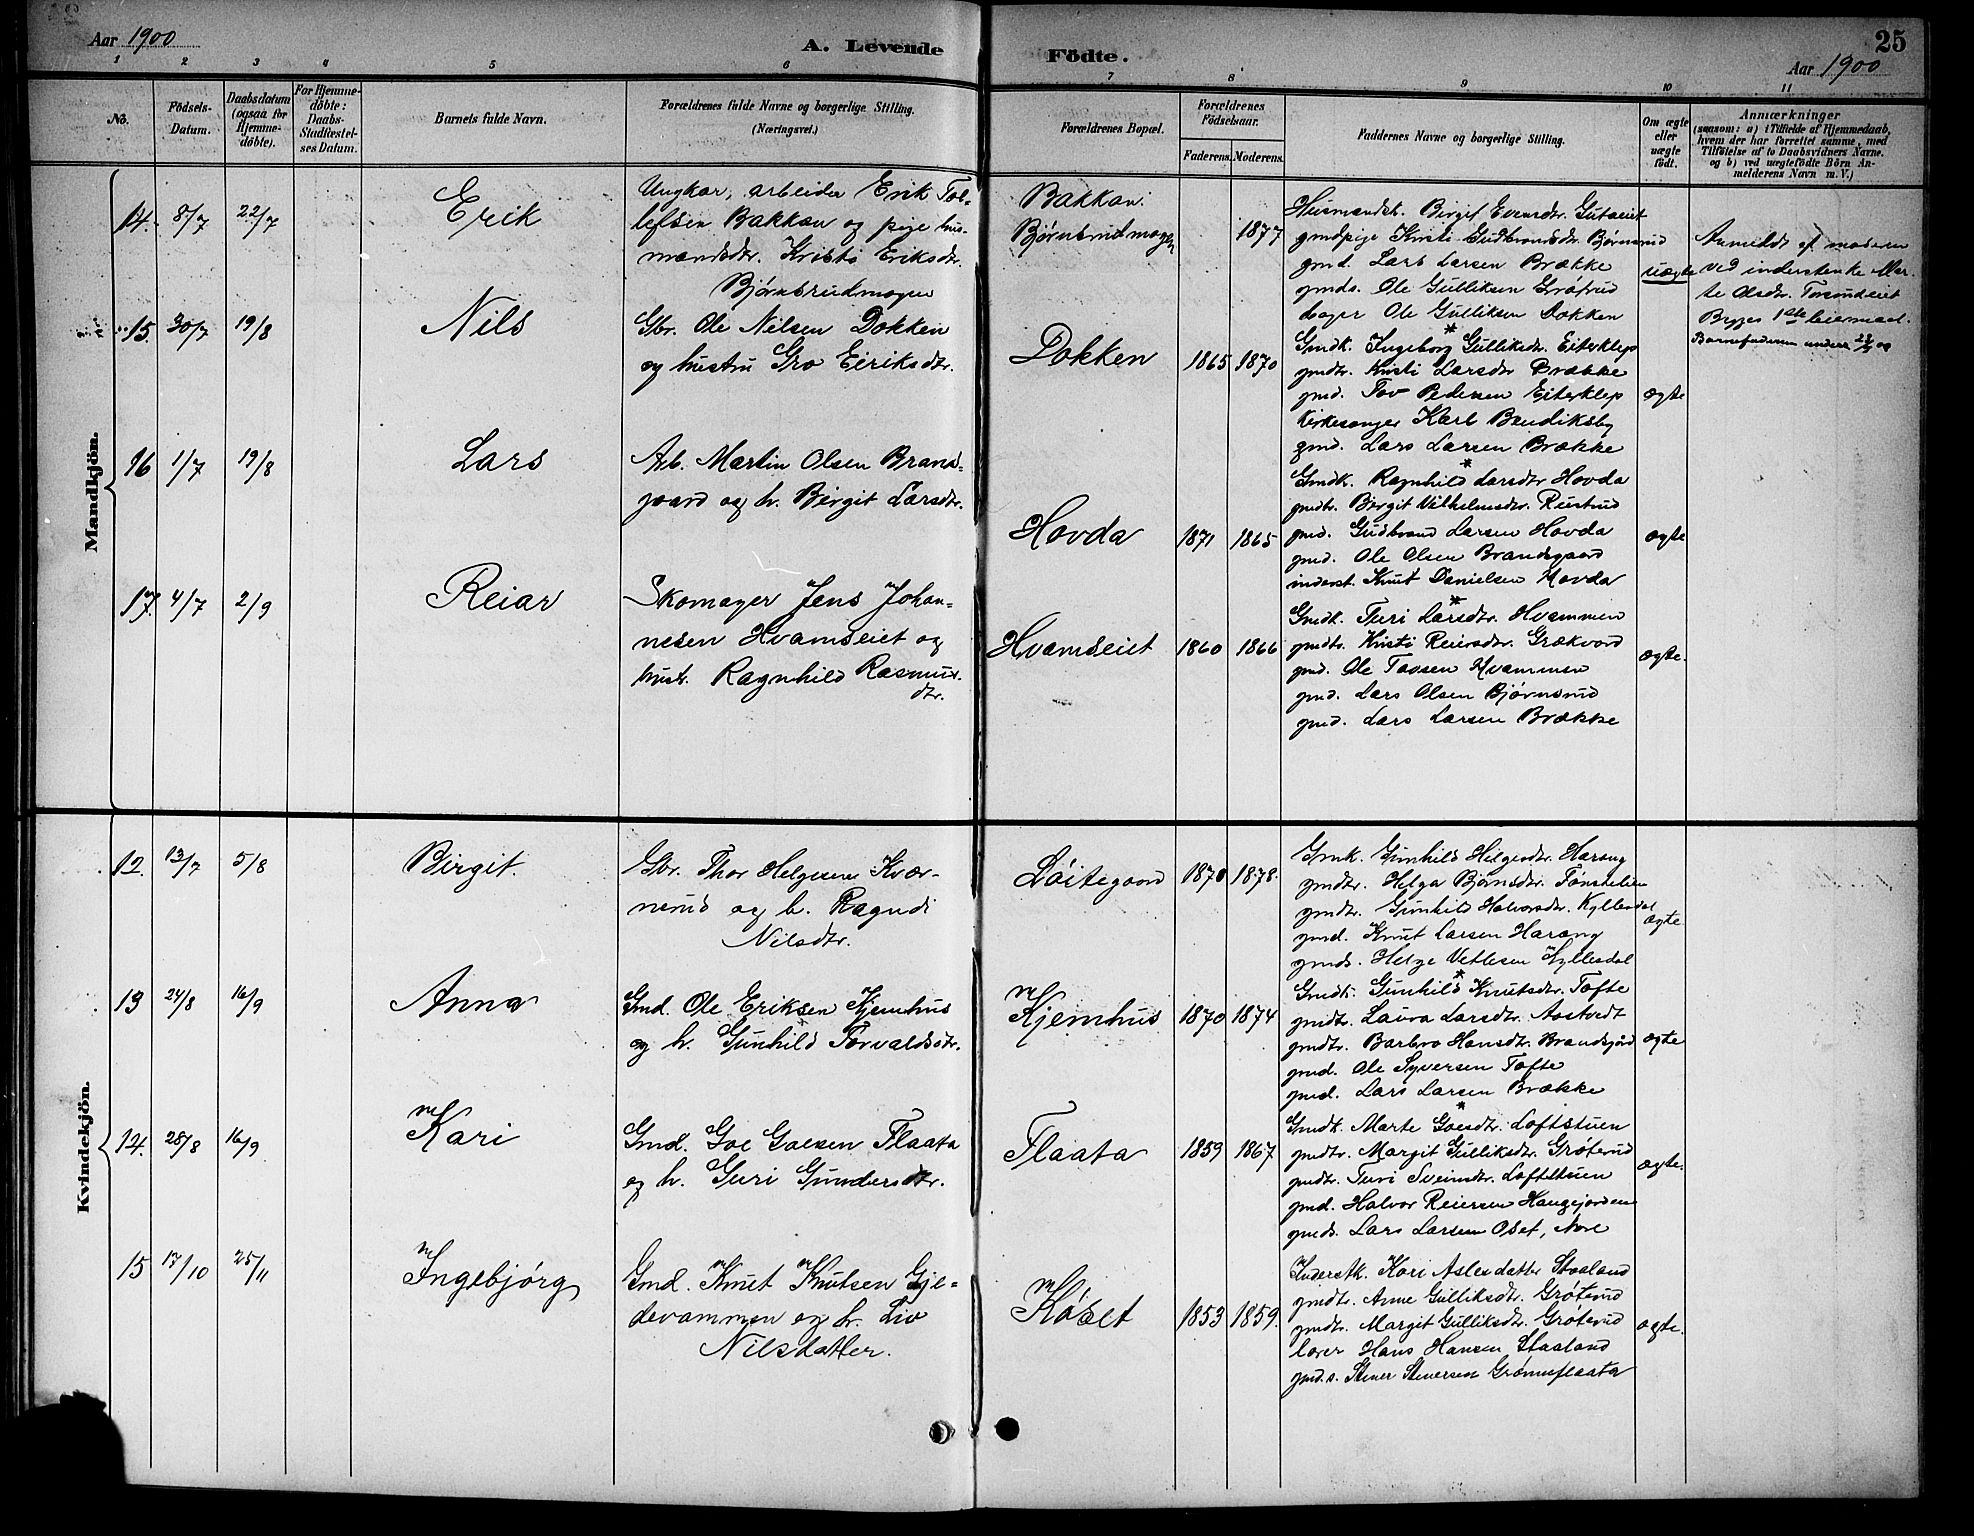 Aar 1900
A. Levende
Födte.
25
Aar 1900
1 2 3 4 5 6 7 8 9 10 11
No.
Födsels-
Datum.
Daabsdatum
(ogsaa for
Hjemme-
döbte).
For Hjemme-
döbte:
Daabs-
Stadfæstel-
ses Datum.
Barnets fulde Navn.
Forældrenes fulde Navne og borgerlige Stilling.
(Næringsvei.)
Forældrenes Bopæl.
Forældrenes
Födselsaar.
Faderens. Moderens.
Faddernes Navne og borgerlige Stilling.
Om ægte
eller
uægte
født.
Anmærkninger
(saasom: a) i Tilfælde af Hjemmedaab,
hvem der har forrettet samme, med
Tilföielse af to Daabsvidners Navne,
og b) ved uægtefödte Börn An-
melderens Navn m. V.)
Mandkjön.
14. 8/7 22/7 Erik
Ungkar, arbeider Erik Tol-
lefsen Bakkan og pige hus-
mandsdtr. Kristi Eriksdtr.
Bjørnsrudmogen
Bakkan.
Bjørnsrudmogen
1877
Husmandsk. Birgit Evensdr. Gutueiet
gmdpige Kristi Gudbrandsdr. Bjørnsrud
gmd. Lars Larsen Brække
gmds. Ole Gulliksen Grøtrud
Ole Gulliksen Dokken
uægte
Anmeldt af moderen
ved inderstenke Mar-
te Olsdr.
Begges 1ste leiermaal.
15. 30/7 19/8 Nils
Gbr. Ole Nilsen Dokken
og hustru Gro Eiriksdtr.
Dokken 1865 1870
Gmdk. Ingeborg Gulliksdr. Eiterklep
gmdtr. Kristi Larsdtr Brække
gmd. Tov Pedersen Eiterklep
Kirkesanger Karl Bendiksby
gmd. Lars Larsen Brække
ægte
16 1/7 19/8 Lars
Arb. Martin Olsen Brands-
gaard og h. Birgit Larsdtr.
Hovda 1871 1865
Gmdk. Ragnhild Larsdtr Hovda
gmdtr. Birgit Vilhelmsdr. Rustrud
gmd. Gudbrand Larsen Hovda
gmd. Ole Olsen Brandsgaard
inderst. Knut Danielsen Hovda
ægte
17. 4/7 2/9 Reiar
Skomager Jens Johan-
nesen Hvamseiet og
hust. Ragnhild Rasmus-
dtr.
Hvamseiet 1860 1866
Gmdk. Turi Larsdtr. Hvammen
gmdtr. Kristi Reiersdtr. Grækvord
gmd. Ole Tovsen Hvammen
gmd. Lars Olsen Bjørnsrud
gmd. Lars Larsen Brække
ægte.
Kvindekjön.
12. 13/7 5/8 Birgit.
Gbr. Thor Helgesen Kvær-
nerud og h. Ragndi
Nilsdtr.
Løitegaard 1870 1878.
Gmk. Gunhild Helgesdtr. Harang
gmdtr. Helga Bjørnsdtr. Tønslien
gmdtr. Gunhild Halvorsdtr. Kyllesdal
gmd. Knut Larsen Harang
gmds. Helge Vetlesen Kyllesdal
ægte
13 24/8 16/9 Anna
Gmd. Ole Eriksen Kjemhus
og h. Gunhild Torvaldsdtr.
Kjemhus 1870 1874
Gmdk. Gunhild Knutsdtr. Tofte
gmdtr. Laura Larsdtr. Aastvedt
gmdtr. Barbro Hansdtr. Brandsgård
gmd. Ole Syversen Tofte
gmd. Lars Larsen Brække
ægte
14. 28/8 16/9 Kari
Gmd. Goe Goesen Flaata
og h. Guri Gundersdtr.
Flaata 1859 1867
Gmdk. Marte Goesdtr. Loftstuen
gmdtr. Margit Gulliksdtr. Grøterud
gmdtr. Turi Sveinsdtr. Loftstuen
gmd. Halvor Reiersen Haugejorden
gmds. Lars Larsen Oset, Nore
ægte.
15 17/10 25/11 Ingebjørg
Gmd. Knut Knutsen Gjel-
devammen og h. Liv
Nilsdatter.
Køset 1853 1859.
Inderstk. Kari Aslesdatter Staaland
gmdtr. Anne Gulliksdtr. Grøterud
gmdtr. Margit Gulliksdtr. Grøterud
lærer Hans Hansen Staaland
gmd.s. Stener Stenersen Grønneflaata
ægte.